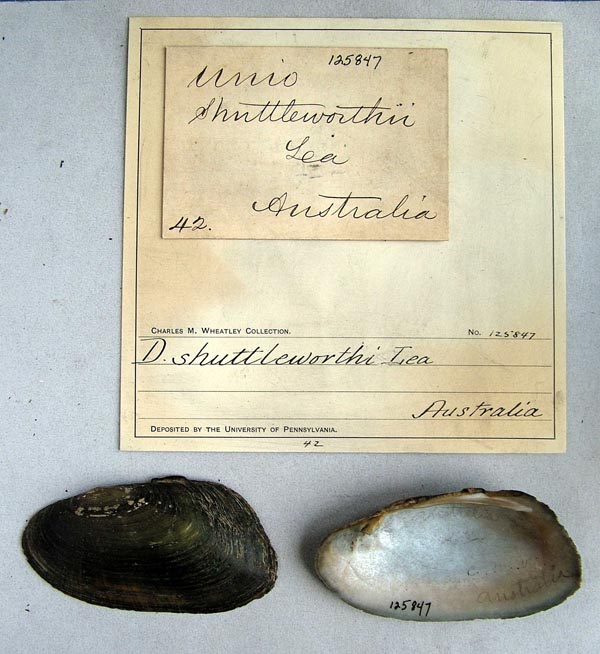 125847
Unio
Shuttleworthii
Lea
Australia
42.
CHARLES M. WHEATLEY COLLECTION.
No. 125847
D. shuttleworthi Lea
Australia
DEPOSITED BY THE UNIVERSITY OF PENNSYLVANIA.
42
Australia
125847